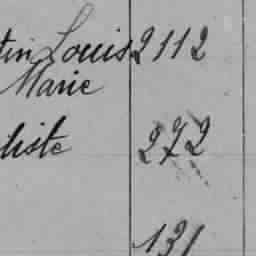 tin Louis 2112
Marie
liste 272
131